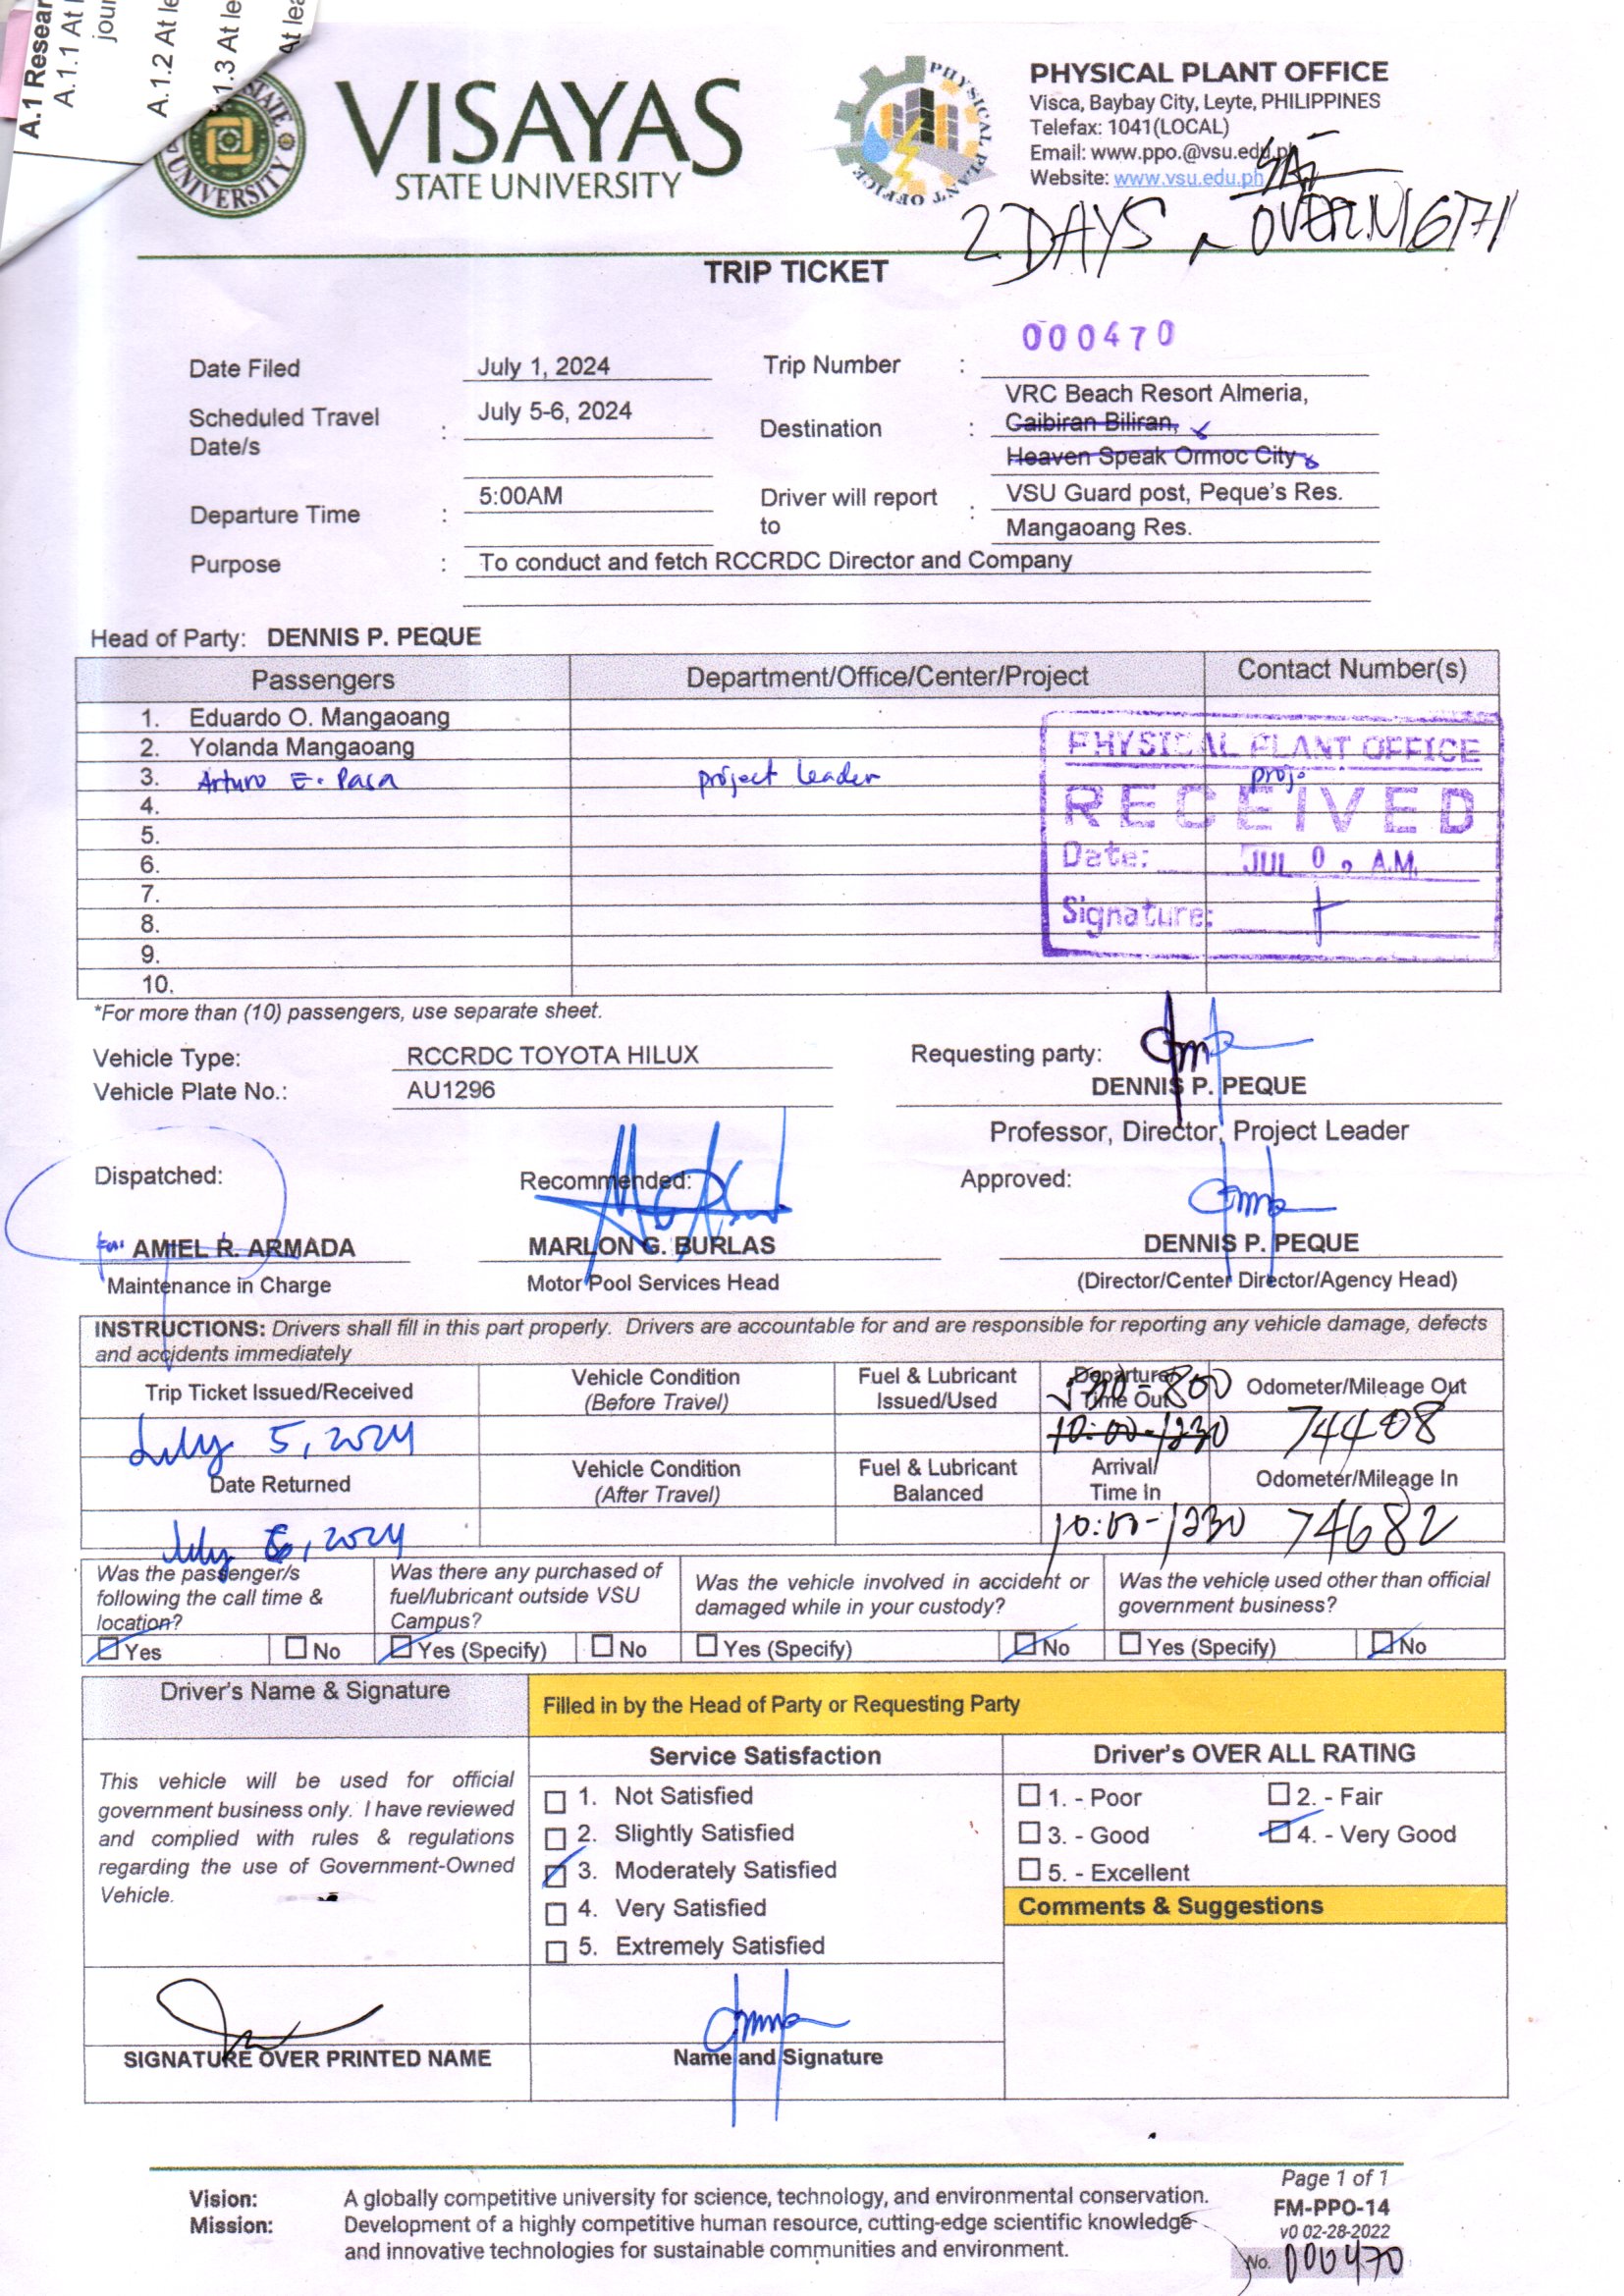 A.1 Resear
A.1.1 At l
jou
A.1.2 At le
1.3 At le
At lea
STATE
UNIVERSITY
VISAYAS
STATE UNIVERSITY
PHYSICAL PLANT OFFICE
PHYSICAL PLANT OFFICE
Visca, Baybay City, Leyte, PHILIPPINES
Telefax: 1041(LOCAL)
Email: www.ppo.@vsu.edu.ph
Website: www.vsu.edu.ph
SAT
2 DAYS OVERNIGTH
TRIP TICKET
000470
Date Filed July 1, 2024 Trip Number :
Scheduled Travel Date/s : July 5-6, 2024 Destination : VRC Beach Resort Almeria,
Caibiran Biliran,
Heaven Speak Ormoc City
Departure Time : 5:00AM Driver will report to : VSU Guard post, Peque's Res.
Mangaoang Res.
Purpose : To conduct and fetch RCCRDC Director and Company
Head of Party: DENNIS P. PEQUE
Passengers Department/Office/Center/Project Contact Number(s)
1. Eduardo O. Mangaoang
2. Yolanda Mangaoang
3. Arturo E. Pasa project leader proj.
4.
5.
6.
7.
8.
9.
10.
PHYSICAL PLANT OFFICE
RECEIVED
Date: JUL 0 A.M.
Signature:
*For more than (10) passengers, use separate sheet.
Vehicle Type: RCCRDC TOYOTA HILUX Requesting party:
Vehicle Plate No.: AU1296 DENNIS P. PEQUE
Professor, Director, Project Leader
Dispatched: Recommended: Approved:
for AMIEL R. ARMADA MARLON G. BURLAS DENNIS P. PEQUE
Maintenance in Charge Motor Pool Services Head (Director/Center Director/Agency Head)
INSTRUCTIONS: Drivers shall fill in this part properly. Drivers are accountable for and are responsible for reporting any vehicle damage, defects
and accidents immediately
Trip Ticket Issued/Received Vehicle Condition (Before Travel) Fuel & Lubricant Issued/Used Departure/ Time Out Odometer/Mileage Out
800
July 5, 2024 10:00-1230 74408
Date Returned Vehicle Condition (After Travel) Fuel & Lubricant Balanced Arrival/ Time In Odometer/Mileage In
July 6, 2024 10:00-1230 74682
Was the passenger/s following the call time & location? Was there any purchased of fuel/lubricant outside VSU Campus? Was the vehicle involved in accident or damaged while in your custody? Was the vehicle used other than official government business?
Yes No Yes (Specify) No Yes (Specify) No Yes (Specify) No
Driver's Name & Signature Filled in by the Head of Party or Requesting Party
Service Satisfaction Driver's OVER ALL RATING
This vehicle will be used for official
government business only. I have reviewed
and complied with rules & regulations
regarding the use of Government-Owned
Vehicle.
1. Not Satisfied
2. Slightly Satisfied
3. Moderately Satisfied
4. Very Satisfied
5. Extremely Satisfied
1. - Poor 2. - Fair
3. - Good 4. - Very Good
5. - Excellent
Comments & Suggestions
SIGNATURE OVER PRINTED NAME Name and Signature
Page 1 of 1
Vision: A globally competitive university for science, technology, and environmental conservation.
FM-PPO-14
Mission: Development of a highly competitive human resource, cutting-edge scientific knowledge
v0 02-28-2022
and innovative technologies for sustainable communities and environment.
No. 000470